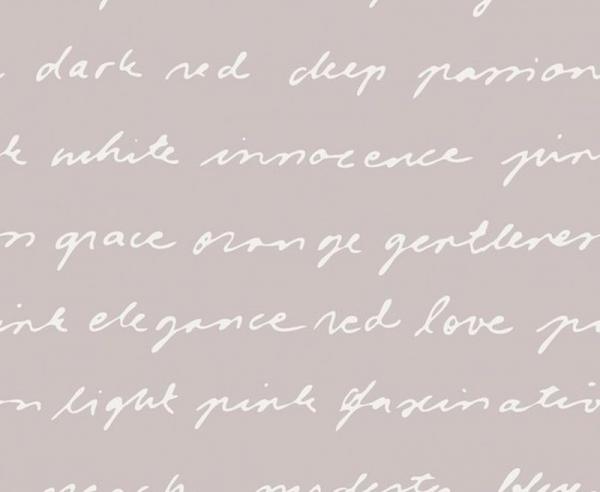 dark red deep passion
white innocence
grace orange gentlenes
elegance red love
light pink fascinatio